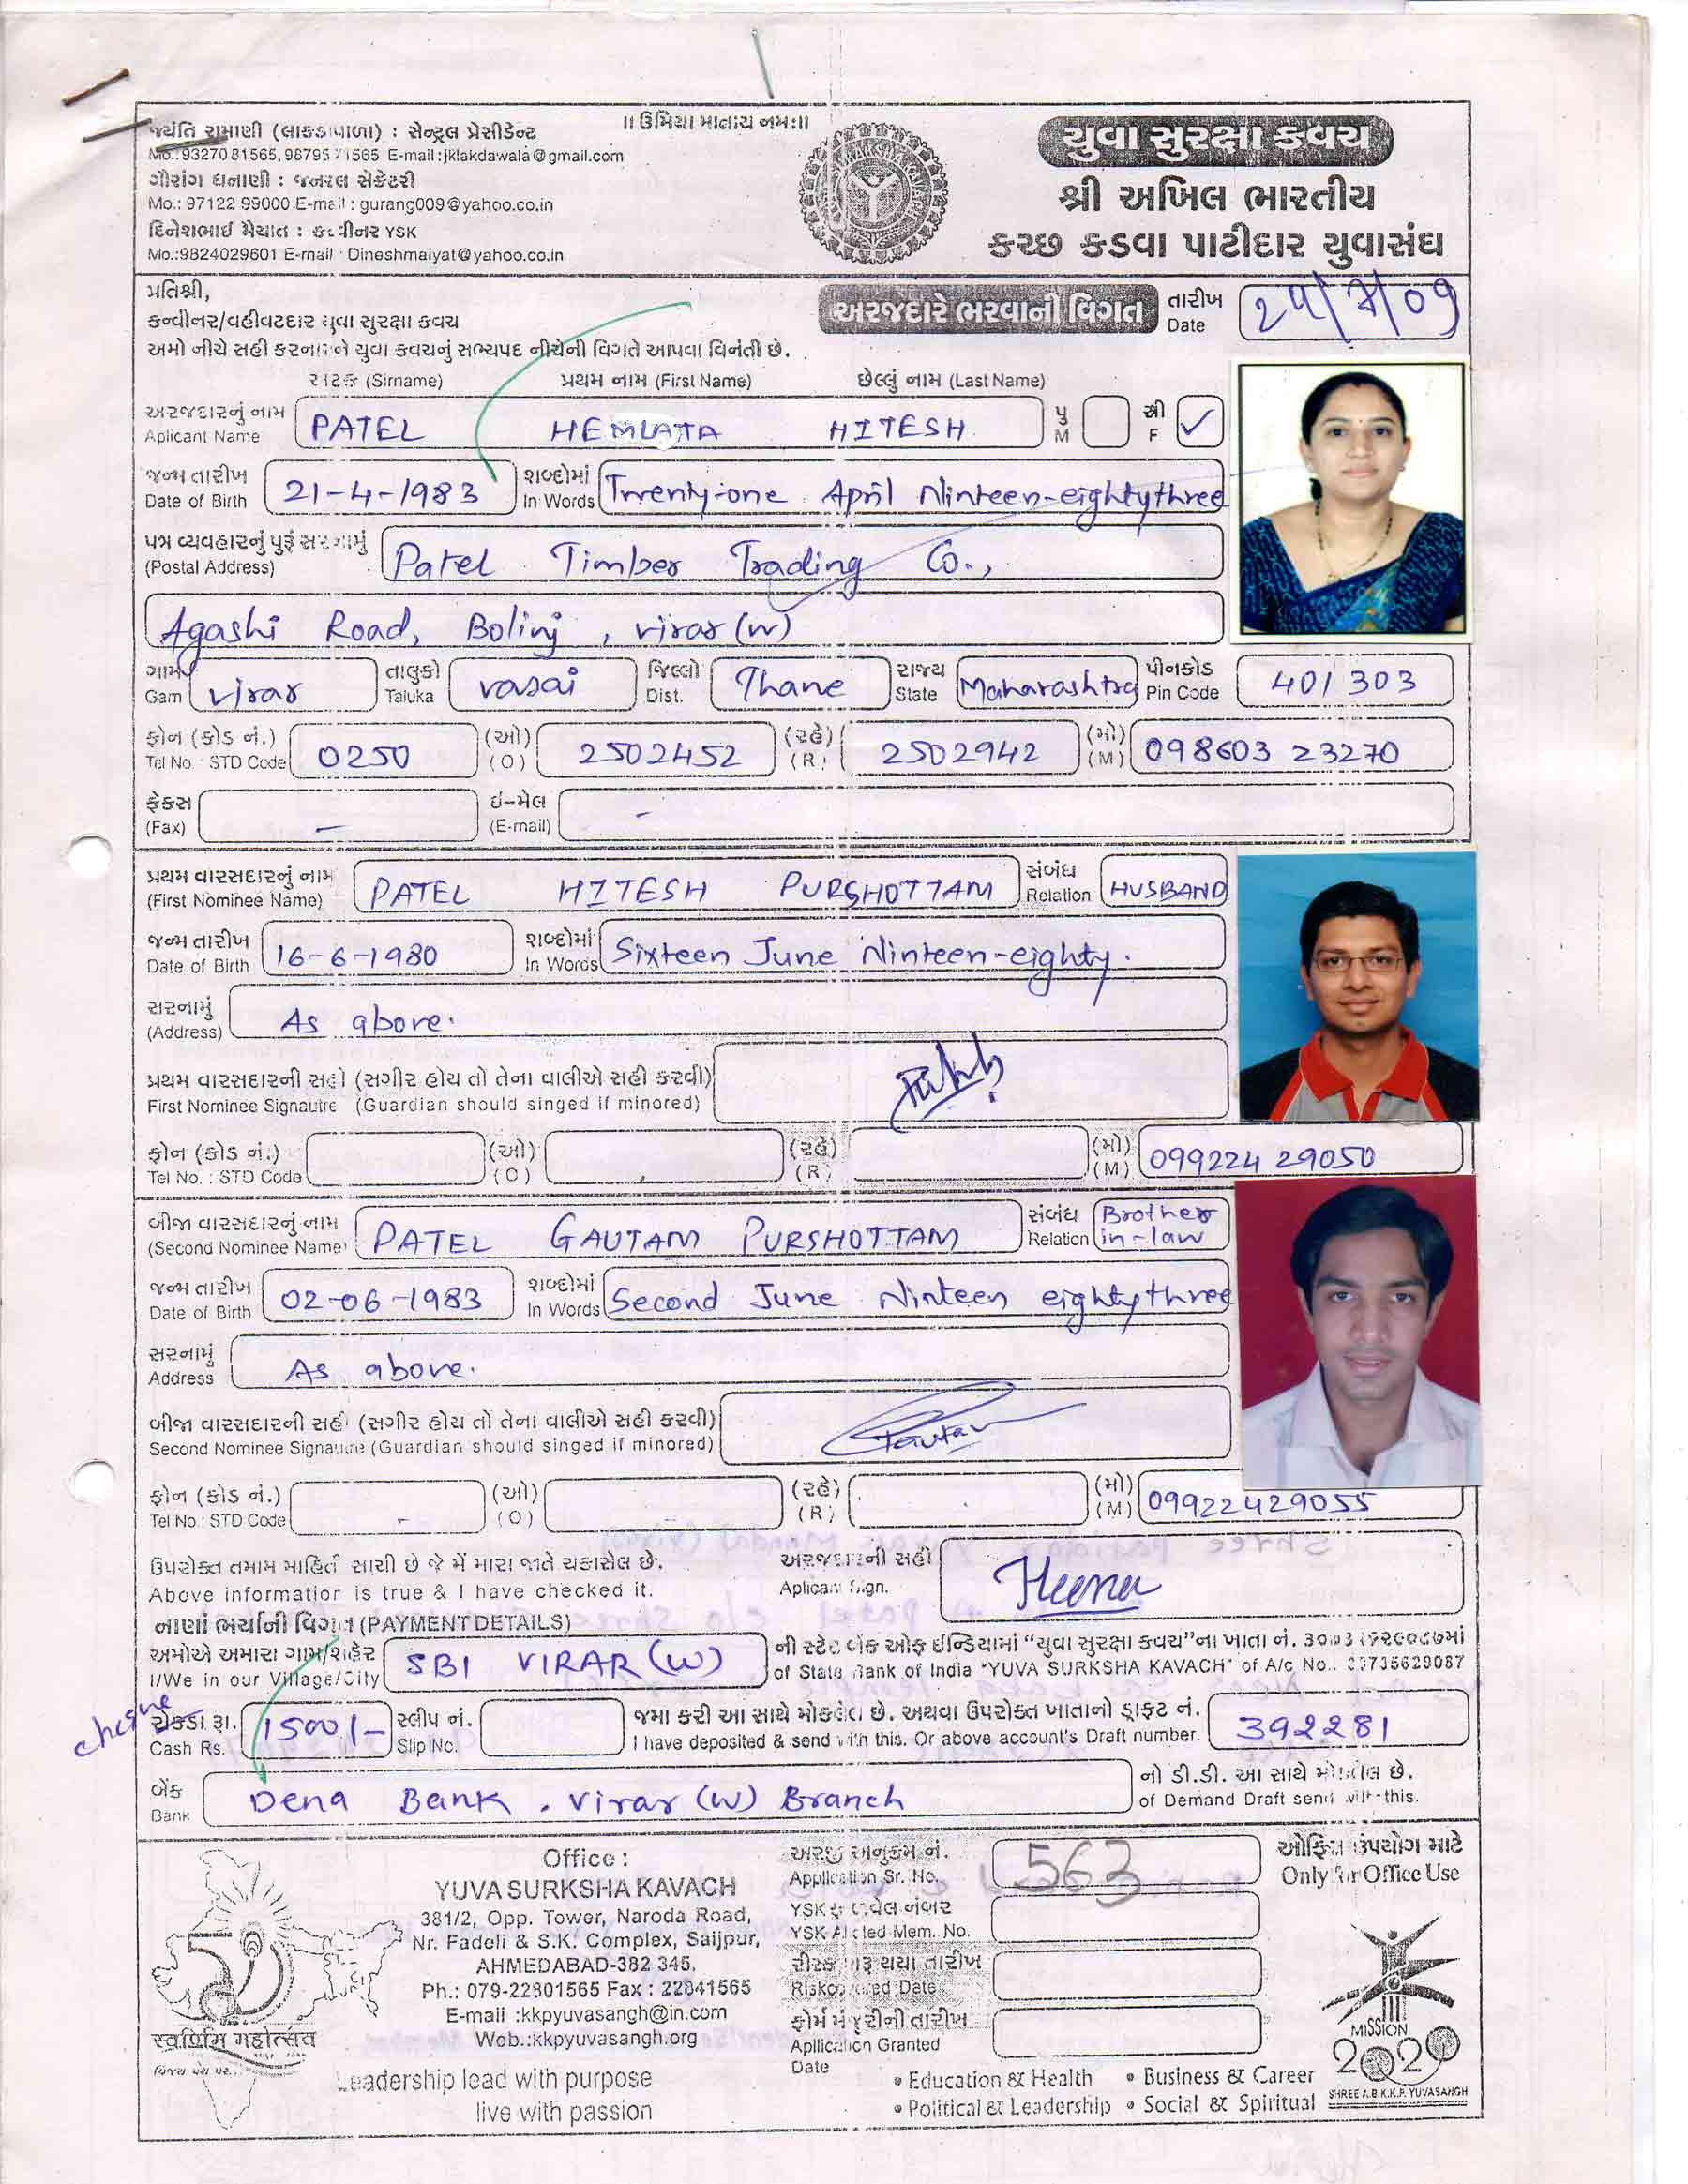 ॥ ઉમિયા માતાય નમઃ॥
જયંતિ રામાણી (લાકડાવાળા) : સેન્ટ્રલ પ્રેસીડેન્ટ
Mo.:9327081565, 98795 71565 E-mail :jklakdawala@gmail.com
ગૌરાંગ ધનાણી : જનરલ સેક્રેટરી
Mo.: 97122 99000 E-mail : gurang009@yahoo.co.in
દિનેશભાઈ મૈયાત : કન્વીનર YSK
Mo.:9824029601 E-mail : Dineshmaiyat@yahoo.co.in
યુવા સુરક્ષા કવચ
શ્રી અખિલ ભારતીય
કચ્છ કડવા પાટીદાર યુવાસંઘ
પ્રતિશ્રી,
કન્વીનર/વહીવટદાર યુવા સુરક્ષા કવચ
અરજદારે ભરવાની વિગત તારીખ Date 24/7/09
અમો નીચે સહી કરનારને યુવા કવચનું સભ્યપદ નીચેની વિગતે આપવા વિનંતી છે.
અટક (Sirname) પ્રથમ નામ (First Name) છેલ્લું નામ (Last Name)
અરજદારનું નામ Aplicant Name PATEL HEMLATA HITESH પુ M સ્ત્રી F ✓
જન્મ તારીખ Date of Birth 21-4-1983 શબ્દોમાં In Words Twenty-one April Ninteen-eightythree
પત્ર વ્યવહારનું પુરૂં સરનામું (Postal Address) Patel Timber Trading Co.,
Agashi Road, Bolinj, virar (w)
ગામ Gam virar તાલુકો Taluka vasai જિલ્લો Dist. Thane રાજ્ય State Maharashtra પીનકોડ Pin Code 401 303
ફોન (કોડ નં.) Tel No. STD Code 0250 (ઓ) (O) 2502452 (રહે) (R) 2502942 (મો) (M) 098603 23270
ફેક્સ (Fax) - ઈ-મેલ (E-mail) -
પ્રથમ વારસદારનું નામ (First Nominee Name) PATEL HITESH PURSHOTTAM સંબંધ Relation HUSBAND
જન્મ તારીખ Date of Birth 16-6-1980 શબ્દોમાં In Words Sixteen June Ninteen-eighty.
સરનામું (Address) As above.
પ્રથમ વારસદારની સહી (સગીર હોય તો તેના વાલીએ સહી કરવી)
First Nominee Signautre (Guardian should singed if minored)
ફોન (કોડ નં.) Tel No. : STD Code (ઓ) (O) (રહે) (R) (મો) (M) 099224 29050
બીજા વારસદારનું નામ (Second Nominee Name) PATEL GAUTAM PURSHOTTAM સંબંધ Relation Brother in-law
જન્મ તારીખ Date of Birth 02-06-1983 શબ્દોમાં In Words Second June Ninteen eightythree
સરનામું Address As above.
બીજા વારસદારની સહી (સગીર હોય તો તેના વાલીએ સહી કરવી)
Second Nominee Signautre (Guardian should singed if minored) Gautam
ફોન (કોડ નં.) Tel No.: STD Code - (ઓ) (O) (રહે) (R) (મો) (M) 09922429055
ઉપરોક્ત તમામ માહિતી સાચી છે જે મેં મારા જાતે ચકાસેલ છે. અરજદારની સહી
Above information is true & I have checked it. Aplicant Sign. Heena
નાણાં ભર્યાની વિગત (PAYMENT DETAILS)
અમોએ અમારા ગામ/શહેર SBI VIRAR (W) ની સ્ટેટ બેંક ઓફ ઈન્ડિયામાં “યુવા સુરક્ષા કવચ”ના ખાતા નં.
I/We in our Village/City of State Bank of India "YUVA SURKSHA KAVACH" of A/c No..
cheque રોકડા રૂા. Cash Rs. 1500/- સ્લીપ નં. Slip No. જમા કરી આ સાથે મોકલેલ છે. અથવા ઉપરોક્ત ખાતાનો ડ્રાફ્ટ નં. 392281
I have deposited & send with this. Or above account's Draft number.
બેંક Bank Dena Bank. Virar (W) Branch નો ડી.ડી. આ સાથે મોકલેલ છે.
of Demand Draft send with this.
Office :
YUVA SURKSHA KAVACH
381/2, Opp. Tower, Naroda Road,
Nr. Fadeli & S.K. Complex, Saijpur,
AHMEDABAD-382 345.
Ph.: 079-22801565 Fax : 22841565
E-mail :kkpyuvasangh@in.com
Web.:kkpyuvasangh.org
Leadership lead with purpose
live with passion
स्वर्णिम महोत्सव
અરજી અનુક્રમ નં. Application Sr. No. 563
ઓફિસ ઉપયોગ માટે
Only for Office Use
YSK Aloted Mem. No.
ફોર્મ મંજુરીની તારીખ
Apllication Granted
Date
• Education & Health • Business & Career
• Political & Leadership • Social & Spiritual
MISSION
2020
SHREE A.B.K.K.P. YUVASANGH